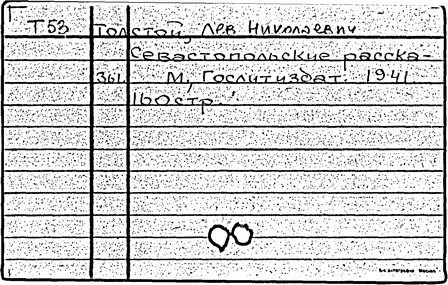 Т53 Толстой, Лев Николаевич
Севастопольские расска-
зы. М, Гослитиздат. 1941
160стр.